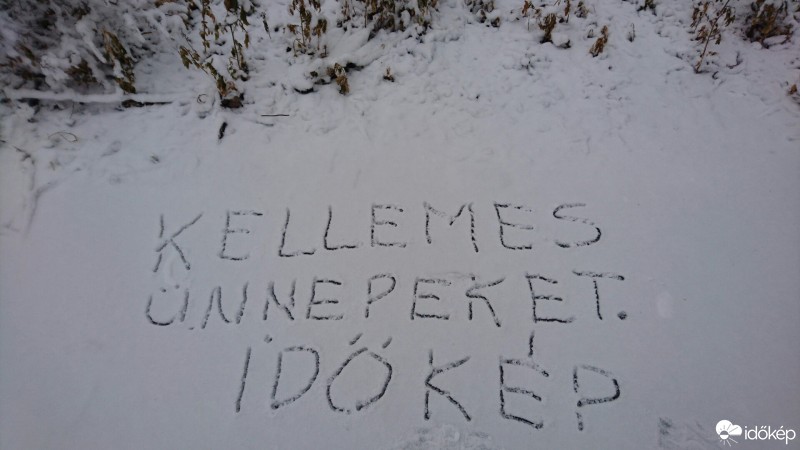 KELLEMES
ÜNNEPEKET.
IDŐKÉP
időkép